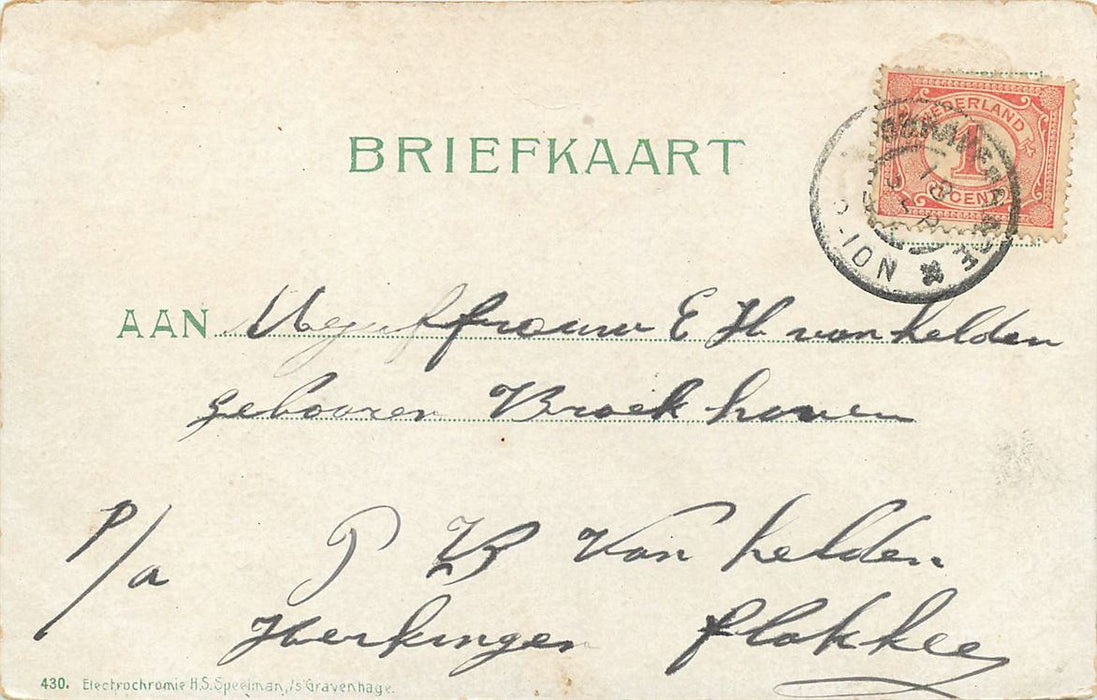 BRIEFKAART
NEDERLAND
1
CENT
AAN Mejuffrouw E H van helden
gebooren Broekhoven
P/a P B Van helden
Herkingen flakkee
430. Electrochromie H.S. Speelman, 's Gravenhage.